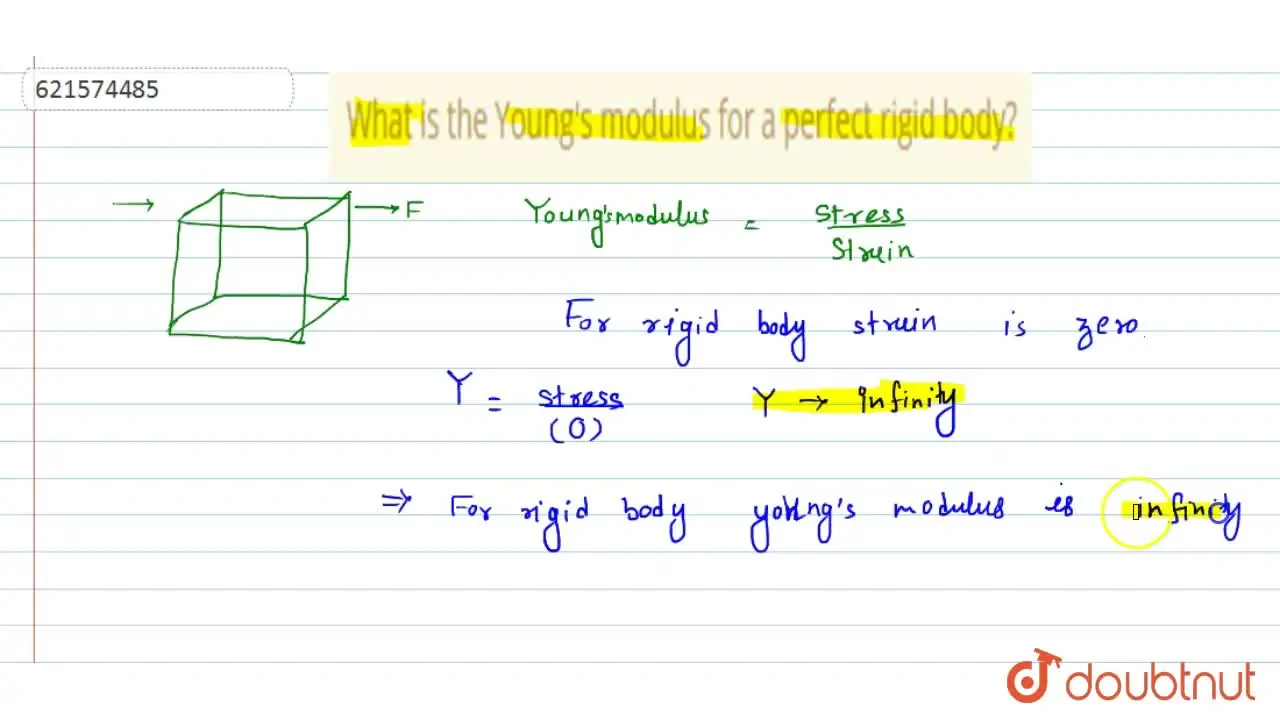 621574485
What is the Young's modulus for a perfect rigid body?
→ → F
Young's modulus = stress
Strain
For rigid body strain is zero.
Y = stress
(0)
Y → infinity
⇒ For rigid body young's modulus is infinity
doubtnut